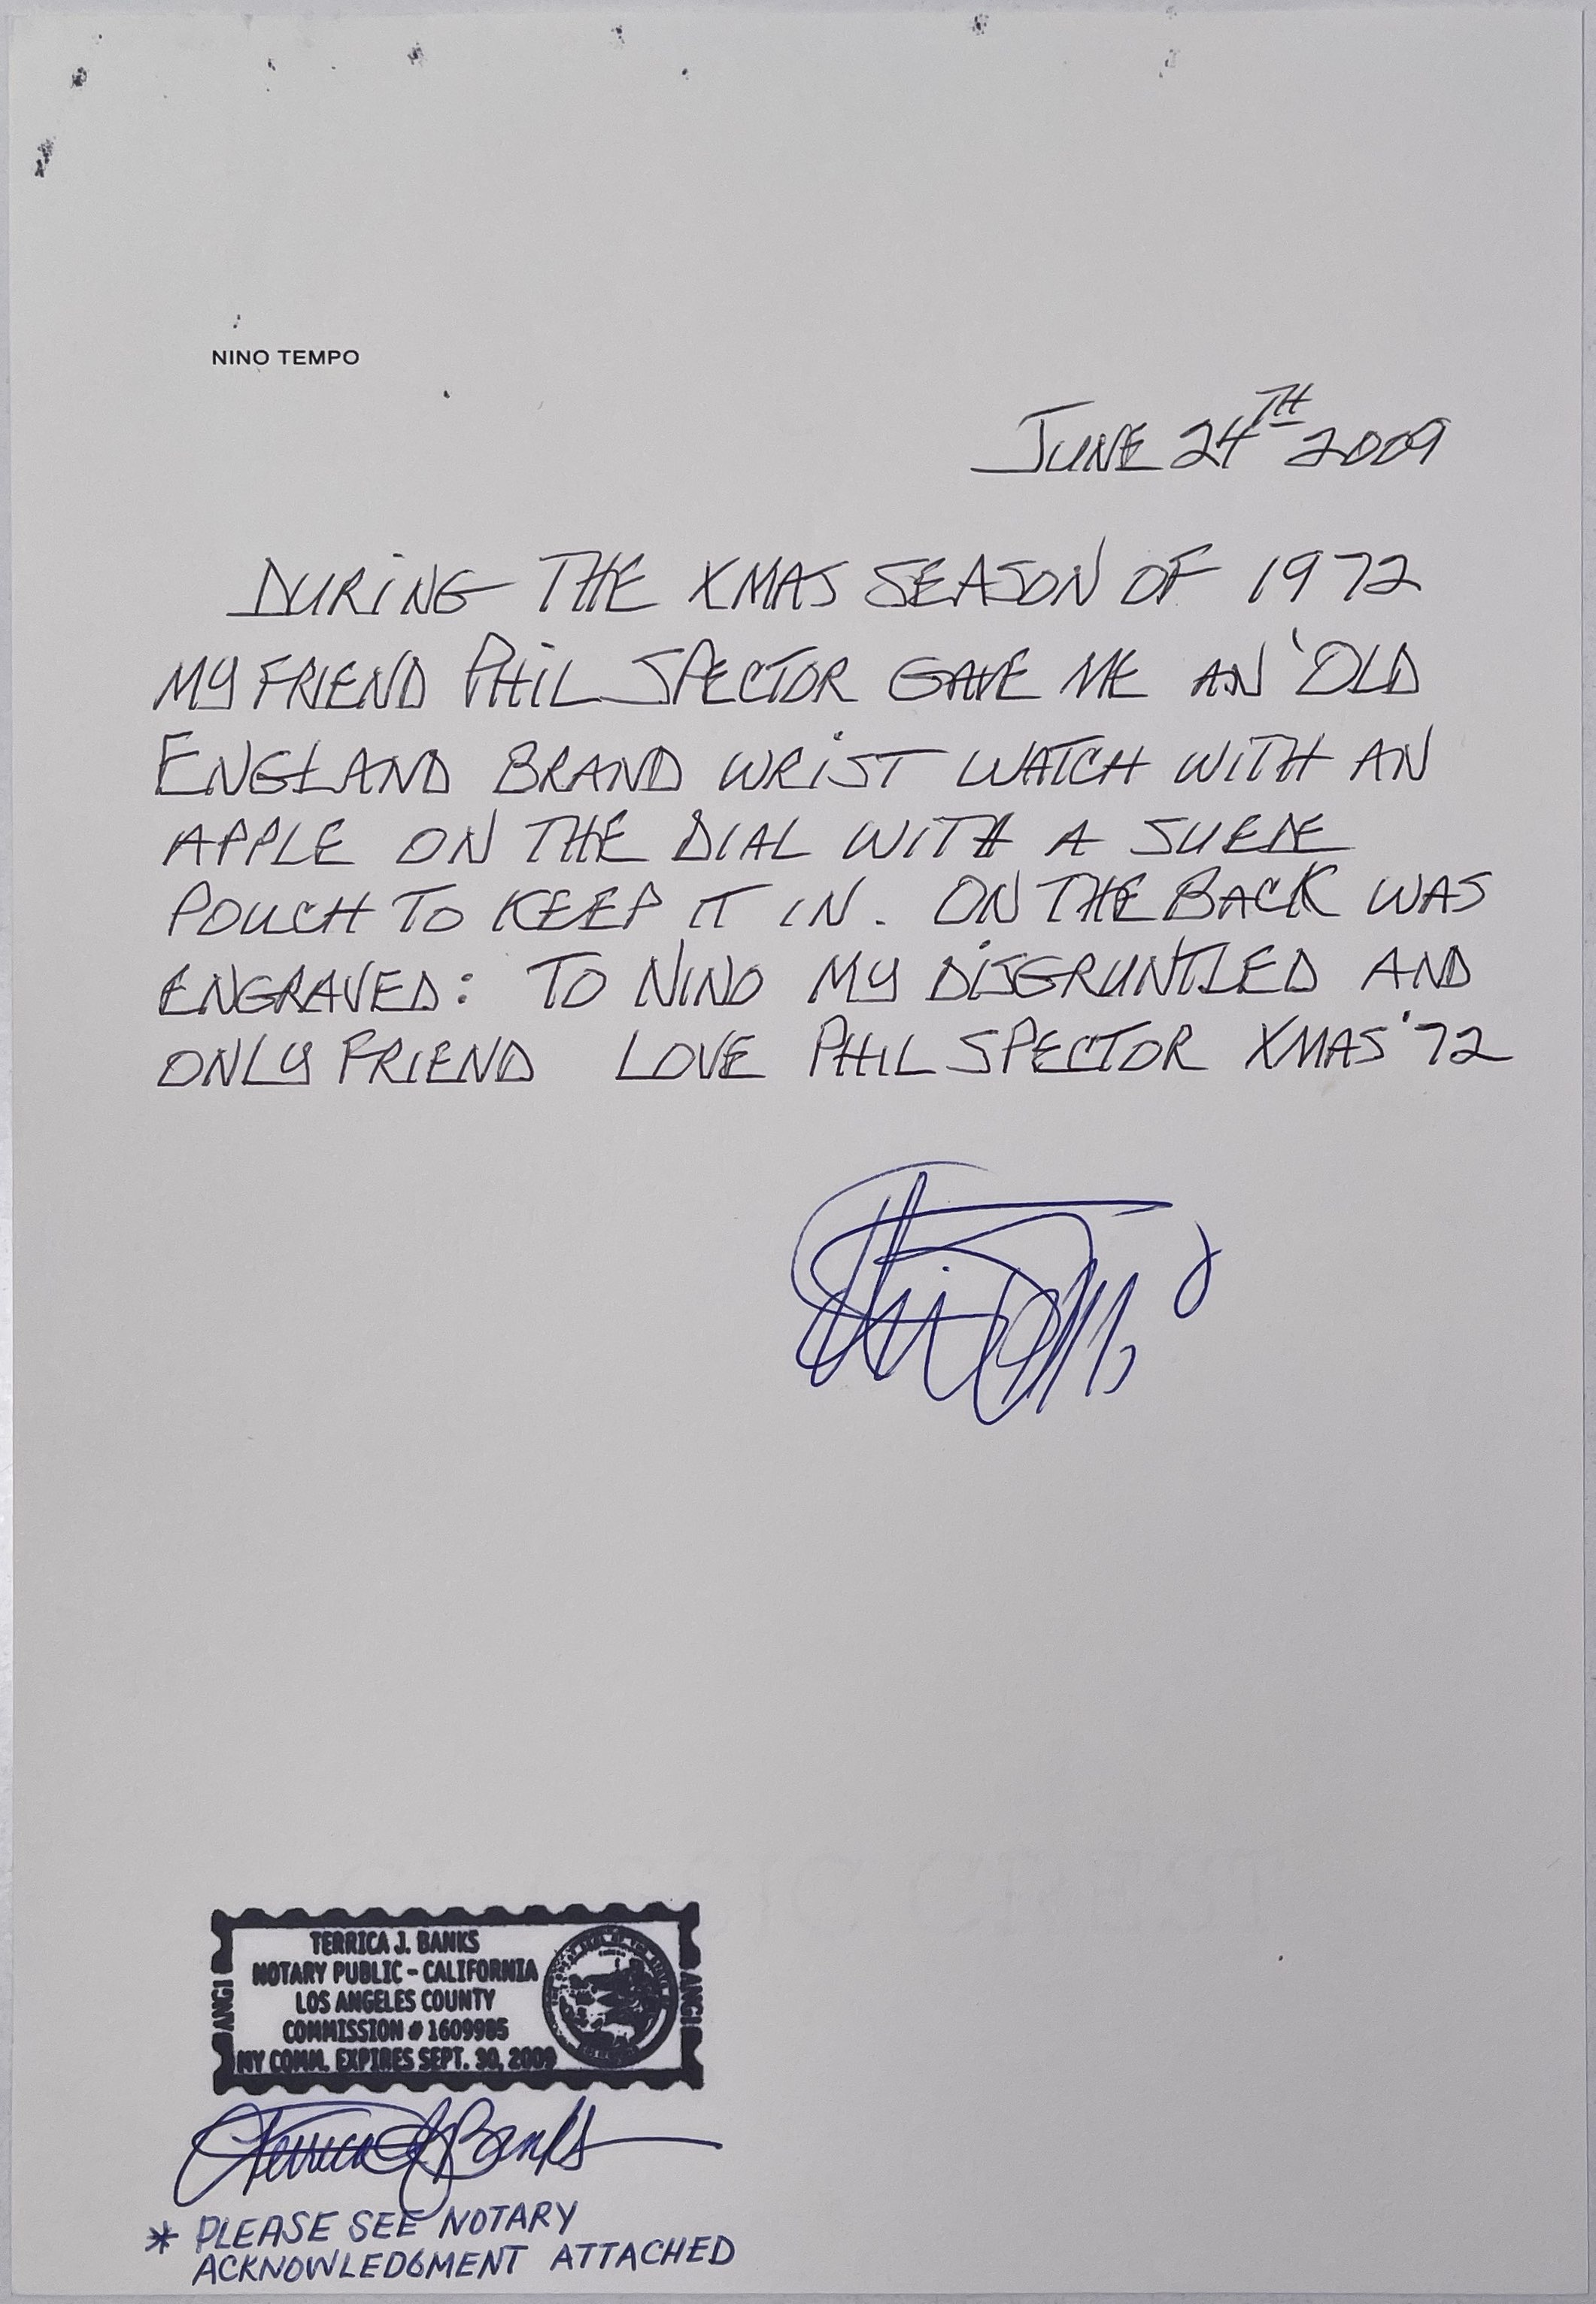 NINO TEMPO
JUNE 24TH 2009
DURING THE XMAS SEASON OF 1972
MY FRIEND PHIL SPECTOR GAVE ME AN 'OLD
ENGLAND BRAND WRIST WATCH WITH AN
APPLE ON THE DIAL WITH A SUEDE
POUCH TO KEEP IT IN. ON THE BACK WAS
ENGRAVED: TO NINO MY DISGRUNTLED AND
ONLY FRIEND LOVE PHIL SPECTOR XMAS '72
TERRICA J. BANKS
NOTARY PUBLIC - CALIFORNIA
LOS ANGELES COUNTY
COMMISSION # 1609985
MY COMM. EXPIRES SEPT. 30, 2009
ANGI
ANGI
Terrica J Banks
* PLEASE SEE NOTARY
ACKNOWLEDGMENT ATTACHED